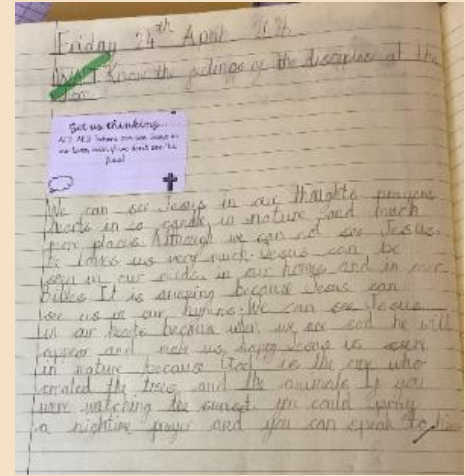 Friday 24th April
Know the feelings of the disciples at the
Get us thinking...
where can we see Jesus in
our lives even if we don't see his
face?
We can see Jesus in our thoughts prayers
hearts in in nature and much
more places. Although we can not see Jesus.
he loves us very much. Jesus can be
seen in our in our homes and in our
Bibles It is amazing because Jesus can
see us in our hymns. We can see Jesus
in our hearts because when we are sad he will
appear and make us happy Jesus is seen
in nature because God is the one who
created the trees and the animals if you
were watching the sunset you could pray
a nightime prayer and you can speak to him